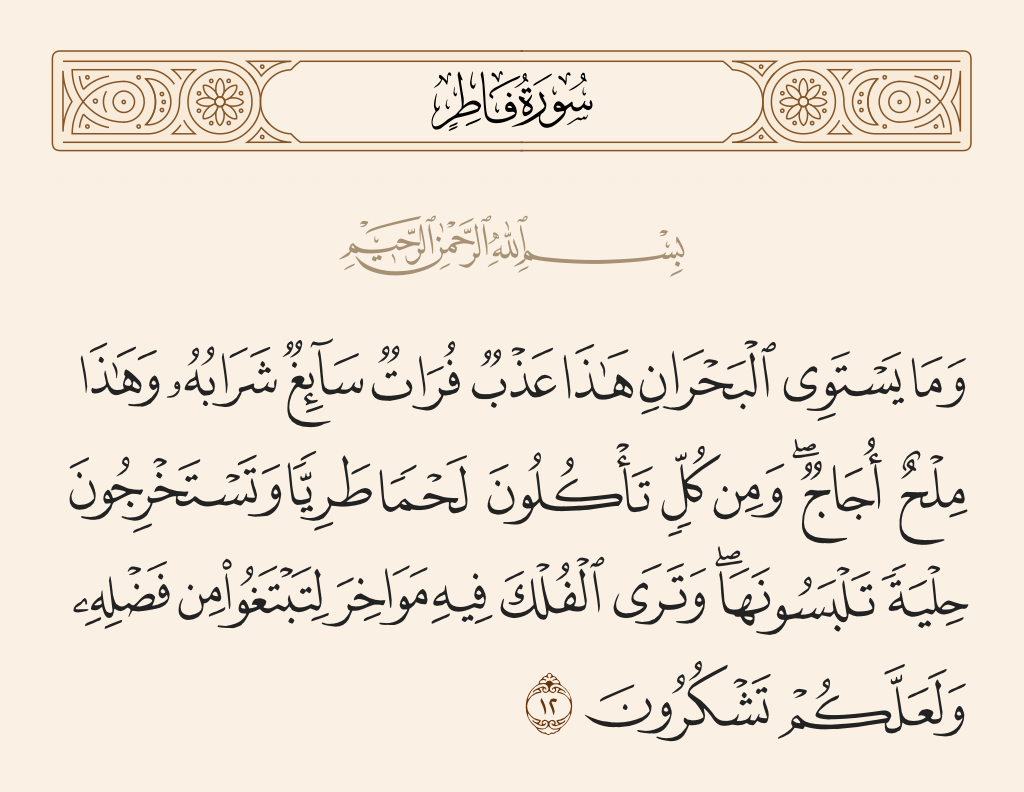 سُورَةُ فَاطِرٍ
بِسْمِ ٱللَّهِ ٱلرَّحْمَٰنِ ٱلرَّحِيمِ
وَمَا يَسْتَوِى ٱلْبَحْرَانِ هَٰذَا عَذْبٌ فُرَاتٌ سَآئِغٌ شَرَابُهُۥ وَهَٰذَا
مِلْحٌ أُجَاجٌ ۖ وَمِن كُلٍّ تَأْكُلُونَ لَحْمًا طَرِيًّا وَتَسْتَخْرِجُونَ
حِلْيَةً تَلْبَسُونَهَا ۖ وَتَرَى ٱلْفُلْكَ فِيهِ مَوَاخِرَ لِتَبْتَغُوا۟ مِن فَضْلِهِۦ
وَلَعَلَّكُمْ تَشْكُرُونَ ١٢